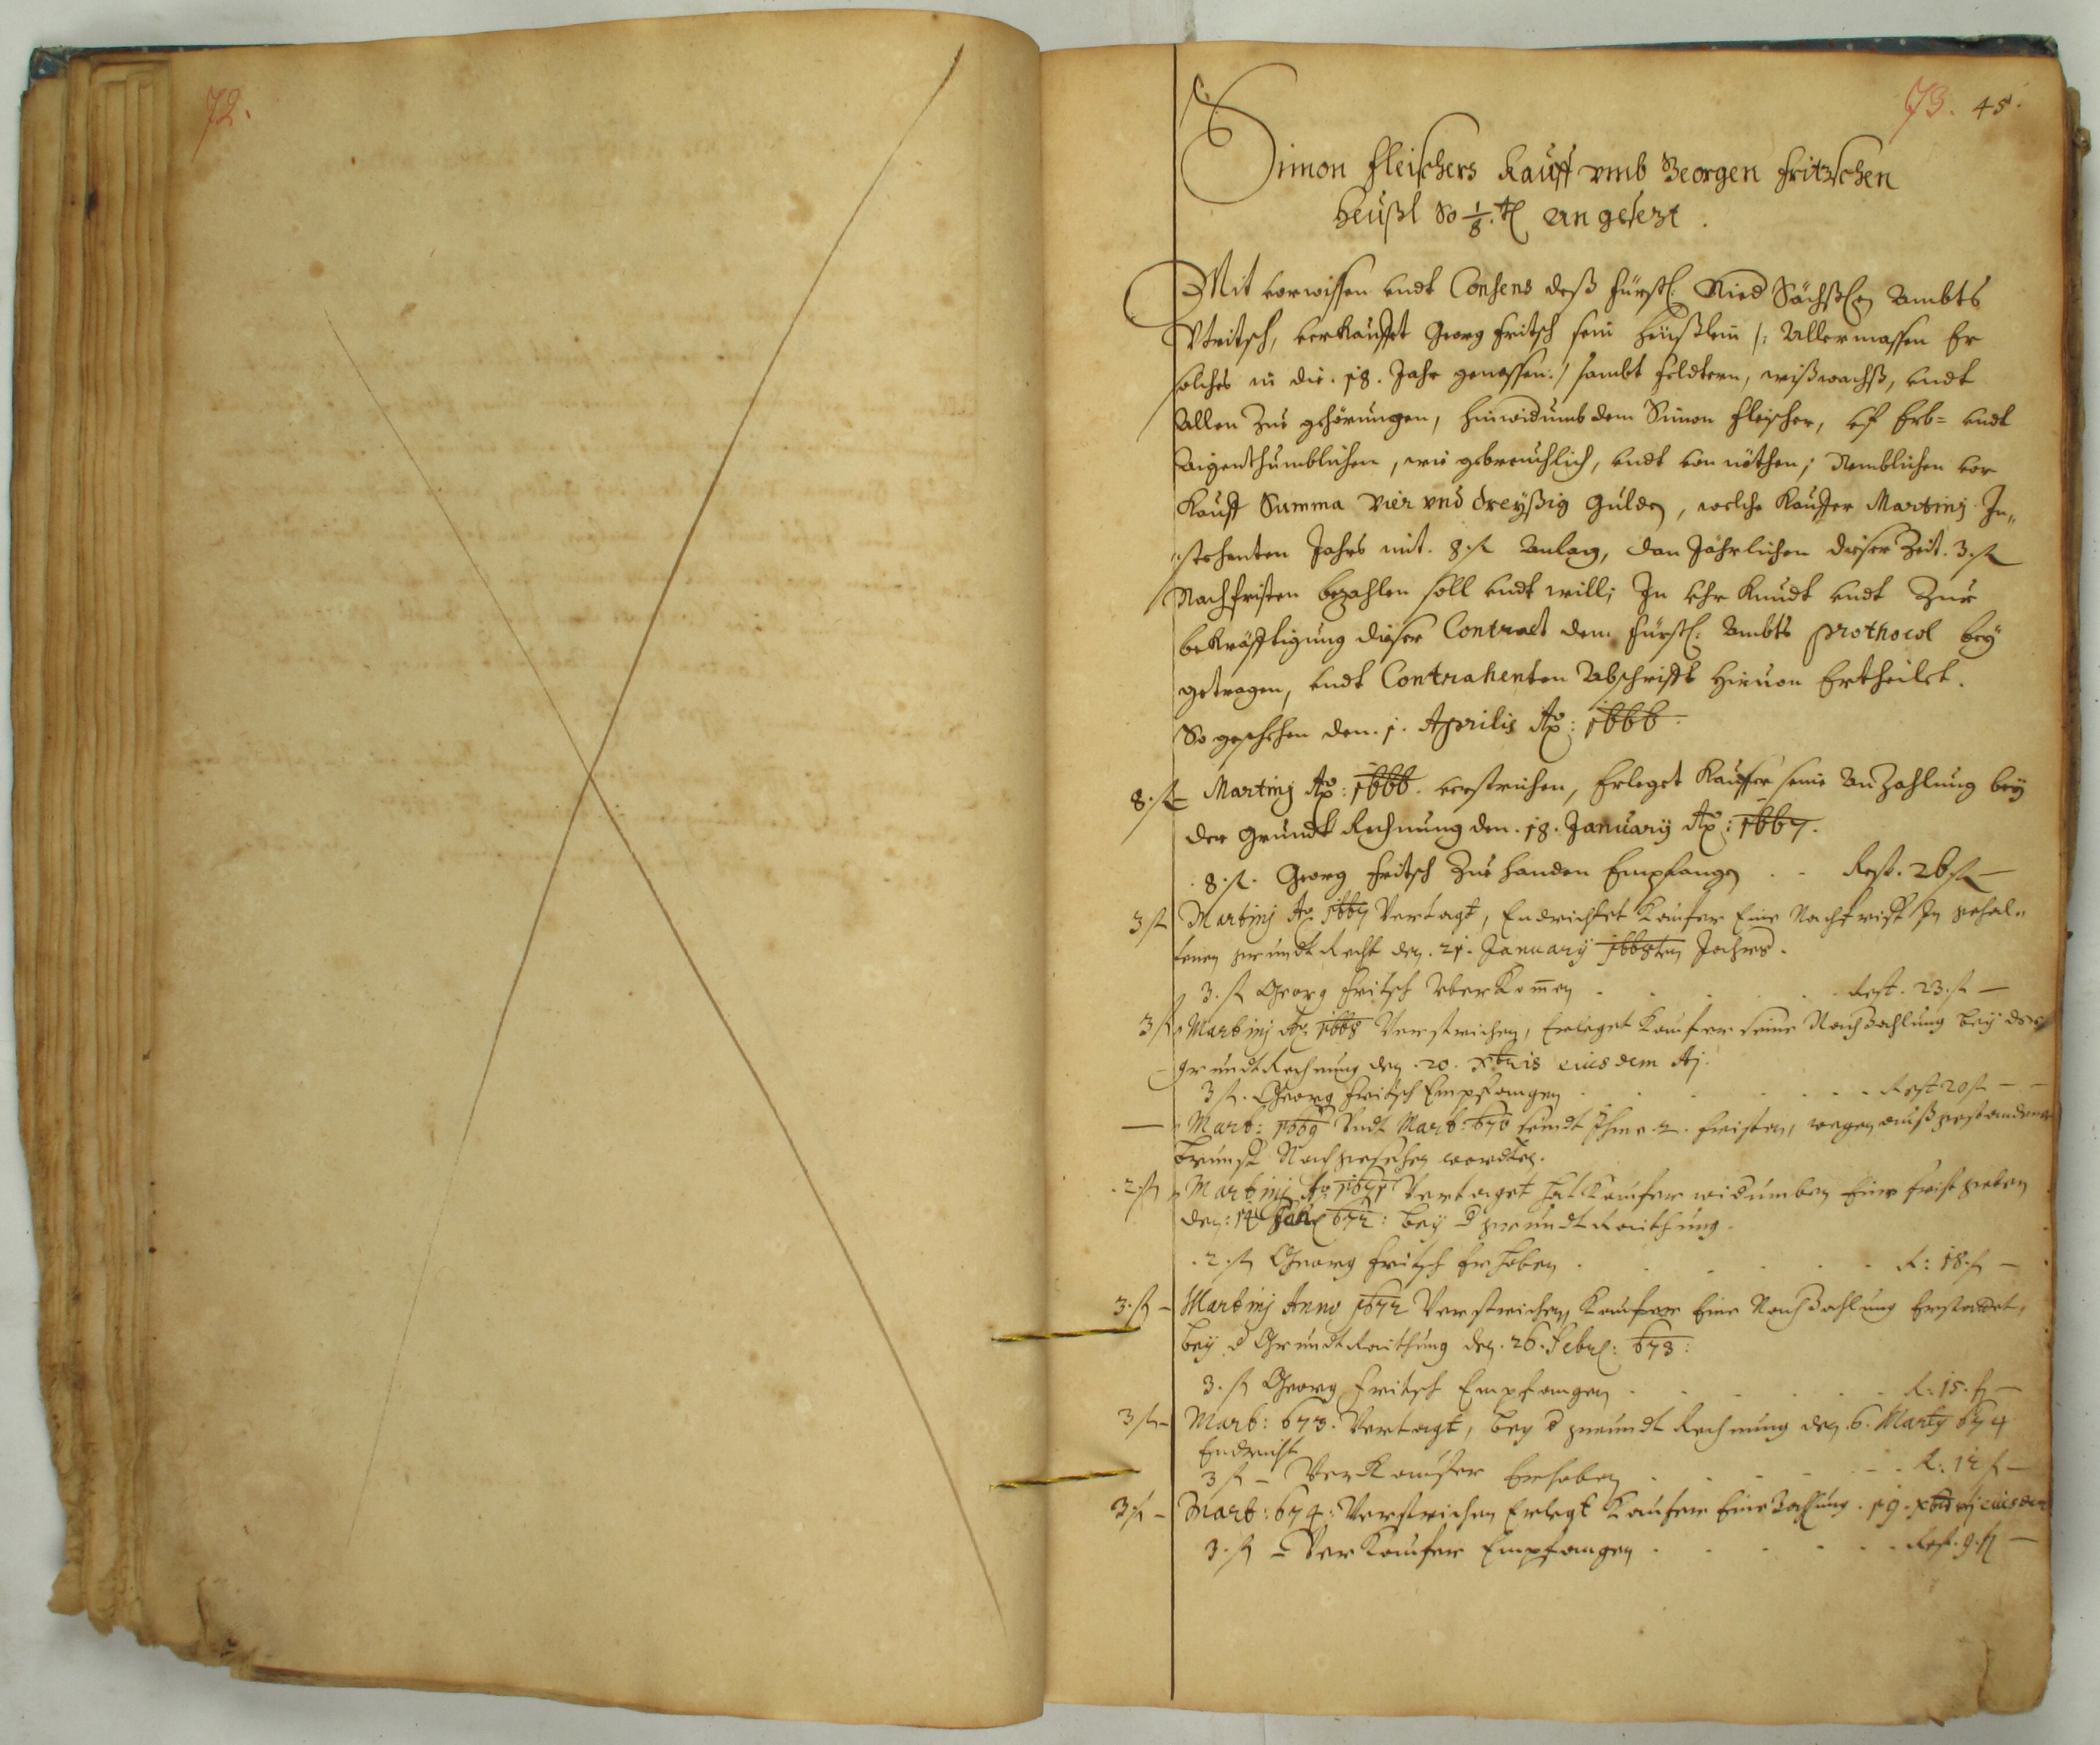 72.
73. 45.
Simon Fleischers Kauff vmb Georgen Fritzschen
Heußl so 1/8. angesezt.
Mit vorwissen vndt Consens deß Fürstl: Sächßl Ambts
verkauffet Georg Fritsch sein Heüßlein /: Allermassen Er
solches in die. 18. Jahr genossen :/ sambt Feldtern, wißwachß, vndt
Allen Zue gehörungen, hinwidumb dem Simon Fleischer, vf Erb= vndt
Aigenthumblichen, wie gebreuchlich, vndt von nöthen; Nemblichen vor
Kauff Summa Vier vnd dreyßig Gulden, welche Kauffer Martinj In„
stehenten Jahrs mit. 8. fl Anlag, dan Jährlichen dieser Zeit. 3. fl
Nachfristen bezahlen soll vndt will; In vhr Kundt vndt Zue
bekräfftigung dieser Contract dem Fürstl: Ambts Prothocol bey
getragen, vndt Contrahenten Abschrifft hieuon Ertheilet.
So geschehen den. 1. Aprilis Ao: 1666.
8. fl – Martinj Ao: 1666. verstrichen, Erleget Kauffer seine Anzahlung bey
der Grundt Rechnung den. 18. January Ao: 1667.
8. fl. Georg Fritsch Zue handen Empfangen . . Rest. 26 fl –
3 fl Martinj Ao 1667 Vertagt, Endrichtet Kaufer Eine Nachfrist In gehal„
tenen grundt Recht den. 21. January 1668ten Jahres.
3. fl Georg Fritsch Vberkomen . . . . Rest. 23. fl –
3 fl Martinj Ao 1668 Verstrichen, Erleget Kaufer seine Nachzahlung bey der
grundt Rechnung den. 20. Xbris eiusdem Aj.
3 fl. Georg Fritsch Empfangen . . . . Rest 20 fl – –
– Mart: 1669 Vndt Mart: 670 seindt Ihme. 2. fristen, wegen außgestandener
brunst Nachgesehen wordten.
2. fl Martinj Ao 1671 Vertaget hat Kaufer widumben Eine frist geben
den: 14 Jan 672: bey d grundt Raithung.
2. fl Georg Fritsch Erhoben . . . . R: 18. fl –
3. fl – Martinj Anno 1672 Verstrichen, Kaufer Eine Nachzahlung Erstadtet,
bey d Grundt Raithung den. 26. Febr: 673:
3. fl Georg Fritsch Empfangen . . . . R: 15. fl –
3 fl – Mart: 673. Vertagt, bey d grundt Rechnung den. 6. Marty 674
Endricht
3 fl – Verkaufer Erhoben . . . . R: 12 fl –
3. fl – Mart: 674: Verstrichen Erlegt Kaufer Eine Zahlung. 19. Xbris eiusdem
3. fl – Verkaufer Empfangen . . . . Rest. 9. fl –